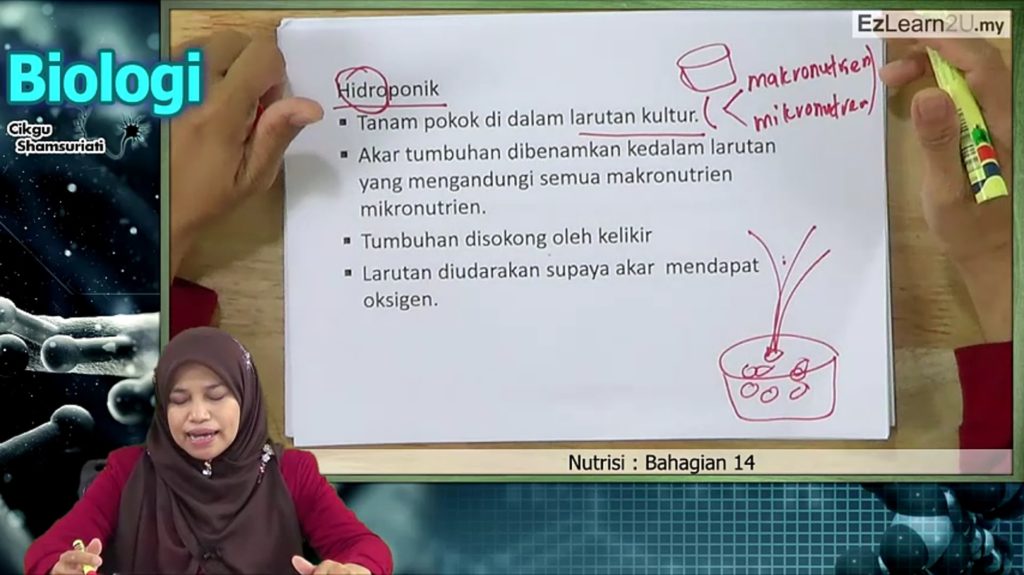 EzLearn2U.my
Biologi
Cikgu
Shamsuriati
Hidroponik
makronutrien
▪ Tanam pokok di dalam larutan kultur.
mikronutren
▪ Akar tumbuhan dibenamkan kedalam larutan
yang mengandungi semua makronutrien
mikronutrien.
▪ Tumbuhan disokong oleh kelikir
▪ Larutan diudarakan supaya akar mendapat
oksigen.
Nutrisi : Bahagian 14